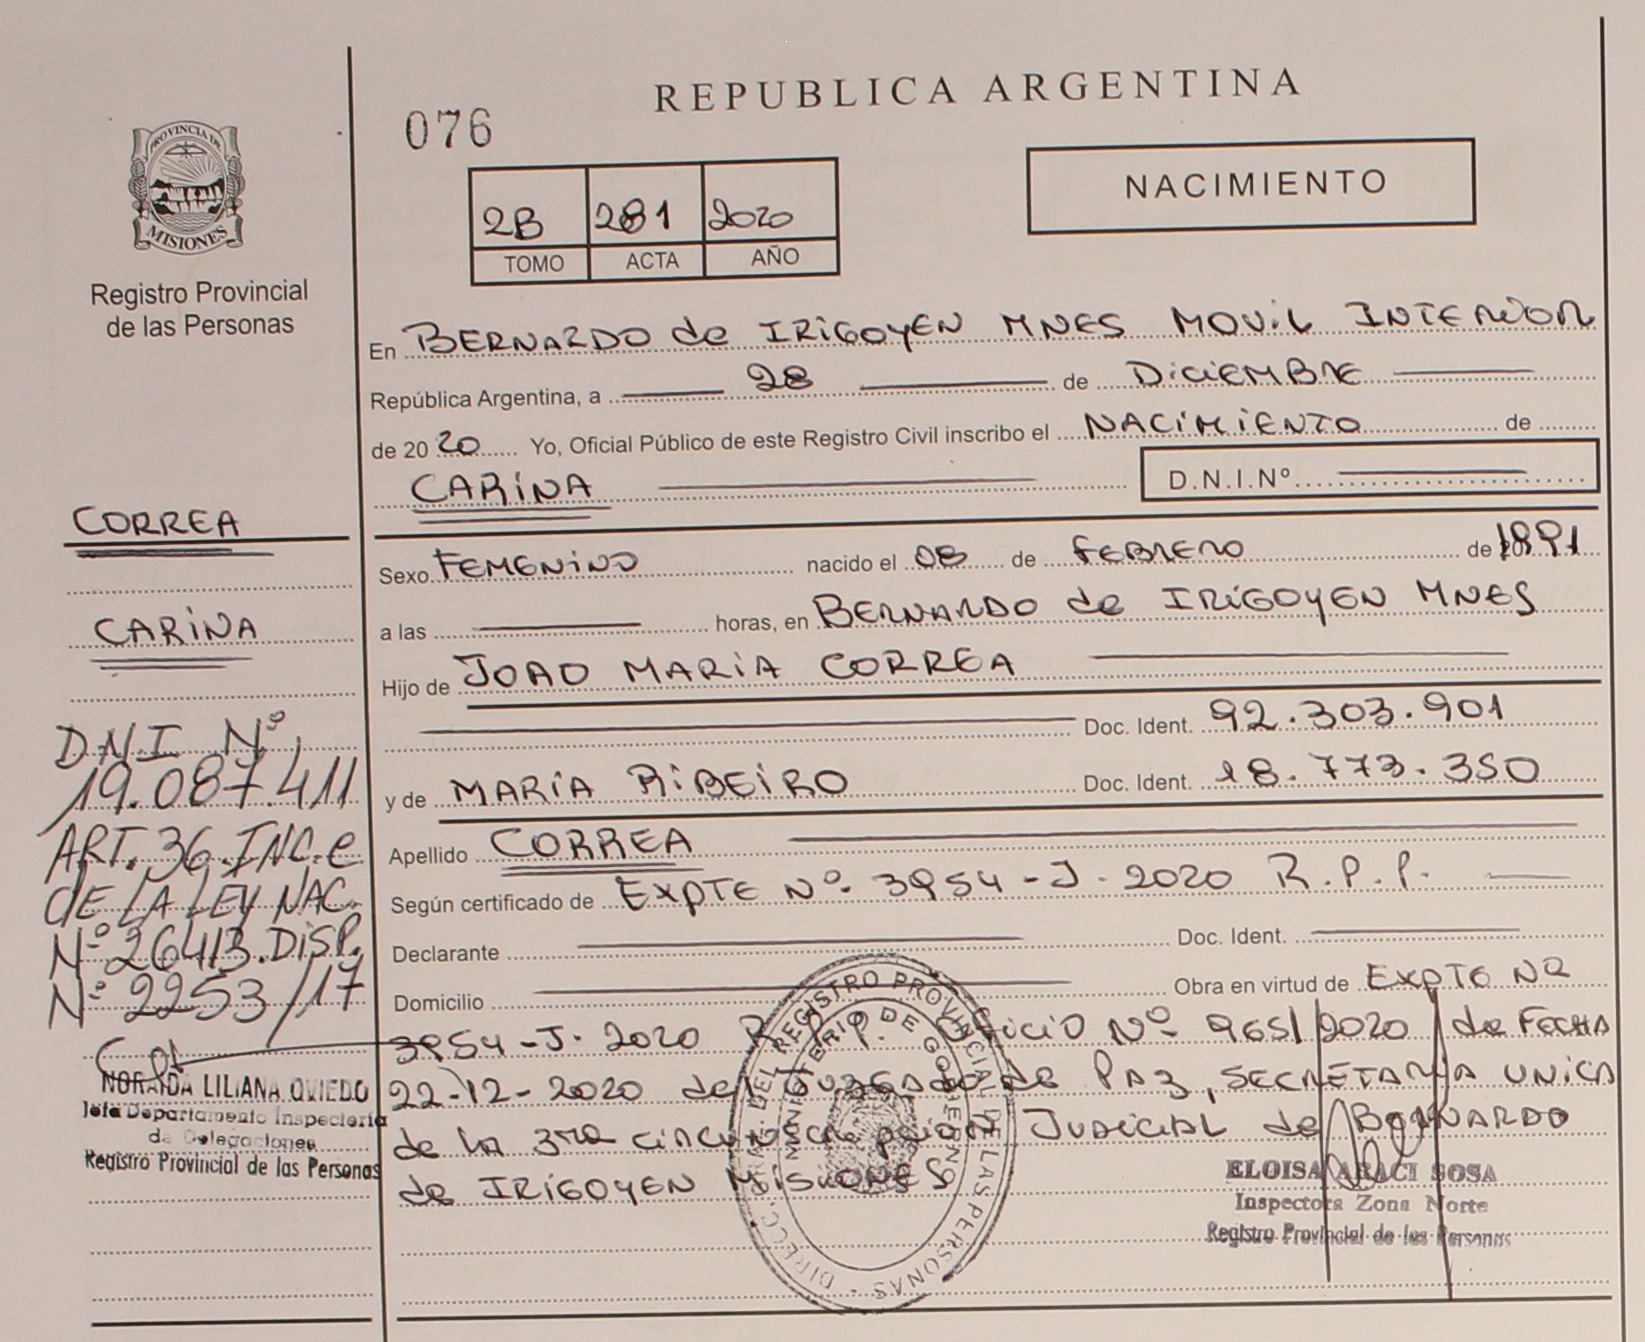 REPUBLICA ARGENTINA
076
NACIMIENTO
2B 281 2020
TOMO ACTA AÑO
PROVINCIA DE
MISIONES
Registro Provincial
de las Personas
En BERNARDO de IRIGOYEN MNES MOVIL INTERIOR
República Argentina, a 28 de DICIEMBRE
de 20 20 Yo, Oficial Público de este Registro Civil inscribo el NACIMIENTO de
CARINA D.N.I.Nº
Sexo FEMENINO nacido el 08 de FEBRERO de
a las horas, en BERNARDO de IRIGOYEN MNES
Hijo de JOAO MARIA CORREA
Doc. Ident. 92.303.901
y de MARIA RIBEIRO Doc. Ident. 18.773.350
Apellido CORREA
Según certificado de EXPTE Nº 3954-J-2020 R.P.P.
Declarante Doc. Ident.
Domicilio Obra en virtud de EXPTE Nº
3954-J-2020 R.P.P. OFICIO Nº 965/2020 de FECHA
22-12-2020 del JUZGADO de PAZ, SECRETARIA UNICA
de la 3ra CIRCUNSCRIPCION JUDICIAL de BERNARDO
de IRIGOYEN MISIONES
CORREA
CARINA
D.N.I. Nº
19.087.411
ART. 36 INC.e
DE LA LEY NAC.
Nº 26413.DISP.
Nº 2253/17
NORAIDA LILIANA OVIEDO
Jefa Departamento Inspectoría
de Delegaciones
Registro Provincial de las Personas
DIRECC. GRAL. DEL REGISTRO PROVINCIAL DE LAS PERSONAS
MINISTERIO DE GOBIERNO
MISIONES
ELOISA ARACI SOSA
Inspectora Zona Norte
Registro Provincial de las Personas